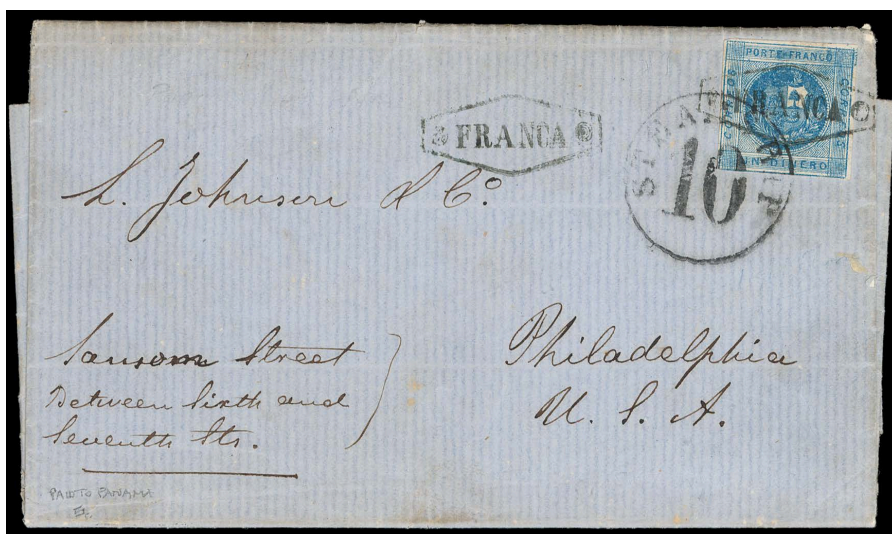 PORTE FRANCO
CORREOS
UN DINERO
FRANCA
FRANCA
STEAMSHIP
10
L. Johnson & Co.
Sansom Street
Between Sixth and
Seventh Sts.
Philadelphia
U. S. A.
PAID TO PANAMA